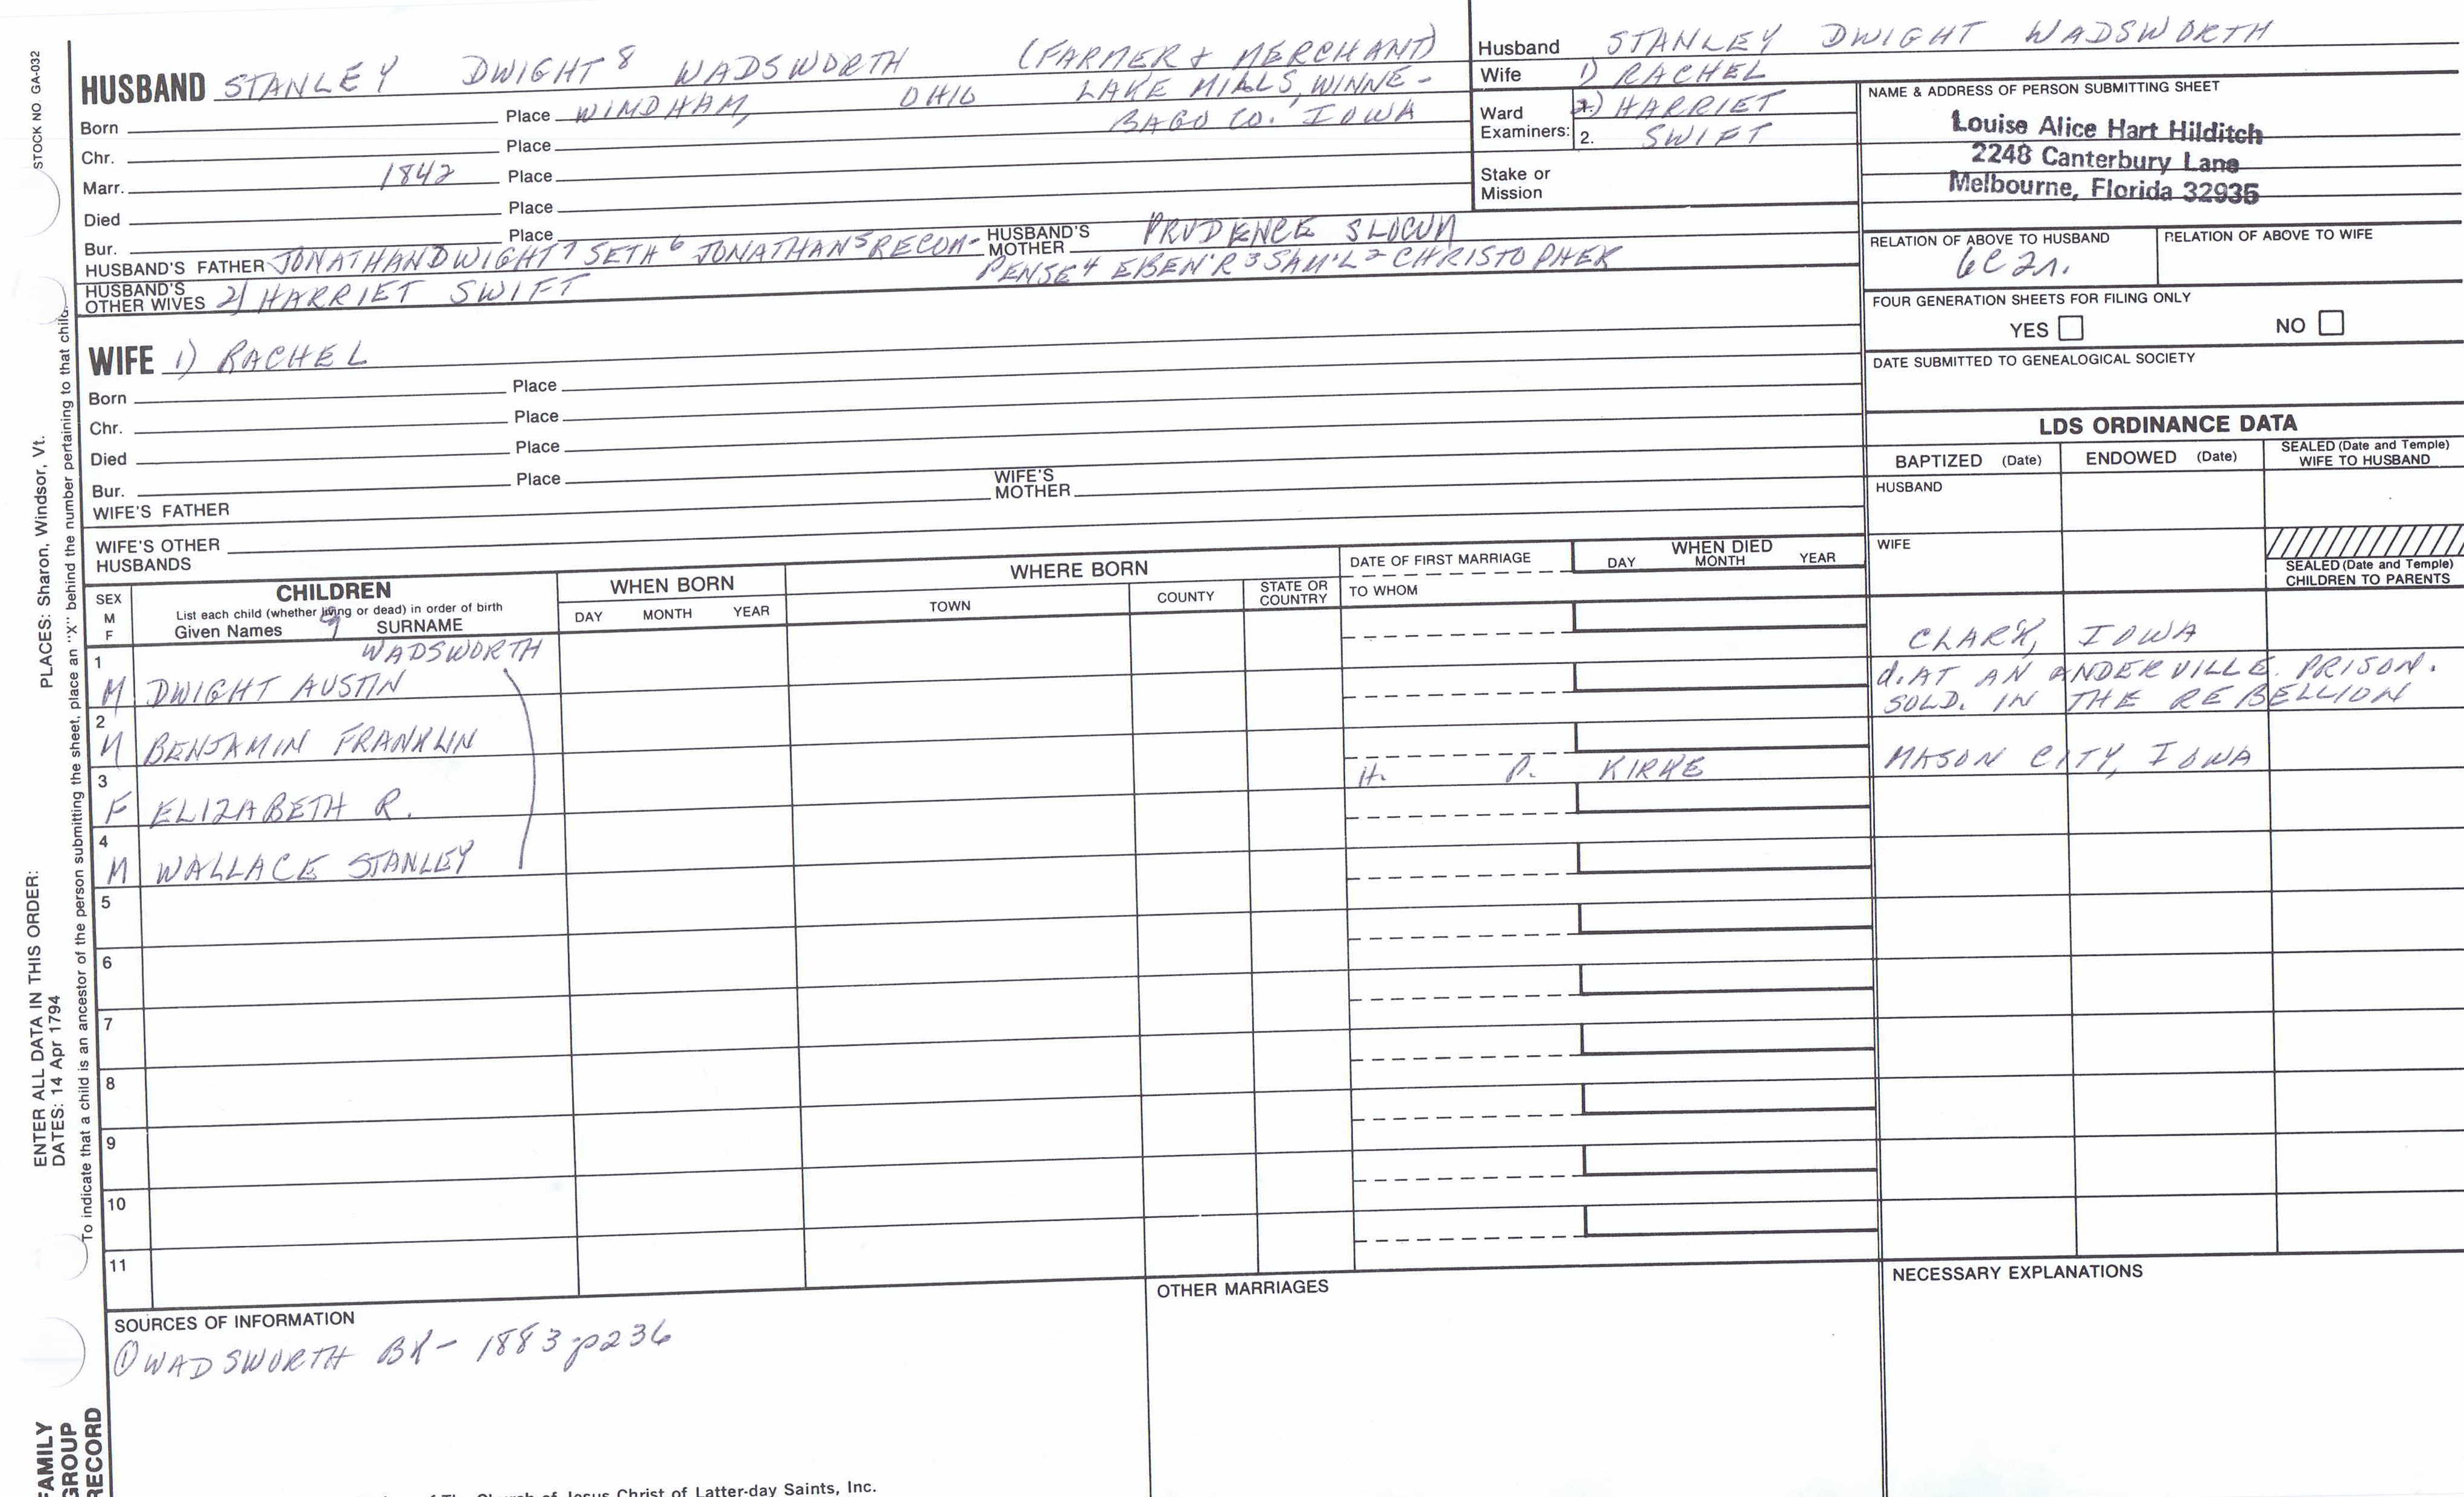 STOCK NO GA-032
HUSBAND STANLEY DWIGHT 8 WADSWORTH (FARMER & MERCHANT)
Born Place WINDHAM, OHIO LAKE MILLS, WINNE-
Chr. Place BAGO CO. IOWA
Marr. 1842 Place
Died Place
Bur. Place
HUSBAND'S FATHER JONATHAN DWIGHT 7 SETH 6 JONATHAN 5 RECOM- HUSBAND'S MOTHER PRUDENCE SLOCUM
PENSE 4 EBEN'R 3 SAM'L 2 CHRISTOPHER
HUSBAND'S OTHER WIVES 2) HARRIET SWIFT
WIFE 1) RACHEL
Born Place
Chr. Place
Died Place
Bur. Place
WIFE'S FATHER WIFE'S MOTHER
WIFE'S OTHER HUSBANDS
Husband STANLEY DWIGHT WADSWORTH
Wife 1) RACHEL
Ward Examiners: 2) HARRIET
2. SWIFT
Stake or Mission
NAME & ADDRESS OF PERSON SUBMITTING SHEET
Louise Alice Hart Hilditch
2248 Canterbury Lane
Melbourne, Florida 32935
RELATION OF ABOVE TO HUSBAND RELATION OF ABOVE TO WIFE
6C 2r.
FOUR GENERATION SHEETS FOR FILING ONLY
YES NO
DATE SUBMITTED TO GENEALOGICAL SOCIETY
LDS ORDINANCE DATA
BAPTIZED (Date) ENDOWED (Date) SEALED (Date and Temple) WIFE TO HUSBAND
HUSBAND
WIFE
SEALED (Date and Temple) CHILDREN TO PARENTS
SEX M F
CHILDREN
List each child (whether living or dead) in order of birth
Given Names SURNAME
WHEN BORN
DAY MONTH YEAR
WHERE BORN
TOWN COUNTY STATE OR COUNTRY
DATE OF FIRST MARRIAGE
TO WHOM
WHEN DIED
DAY MONTH YEAR
1 WADSWORTH
M DWIGHT AUSTIN
CLARK, IOWA
2
M BENJAMIN FRANKLIN
d. AT AN ANDERVILLE PRISON.
SOLD. IN THE REBELLION
3
F ELIZABETH R.
H. P. KIRKE
MASON CITY, IOWA
4
M WALLACE STANLEY
5
6
7
8
9
10
11
SOURCES OF INFORMATION
① WADSWORTH BK - 1883 p236
OTHER MARRIAGES
NECESSARY EXPLANATIONS
PLACES: Sharon, Windsor, Vt.
ENTER ALL DATA IN THIS ORDER:
DATES: 14 Apr 1794
To indicate that a child is an ancestor of the person submitting the sheet, place an "X" behind the number pertaining to that child.
FAMILY
GROUP
RECORD
of The Church of Jesus Christ of Latter-day Saints, Inc.